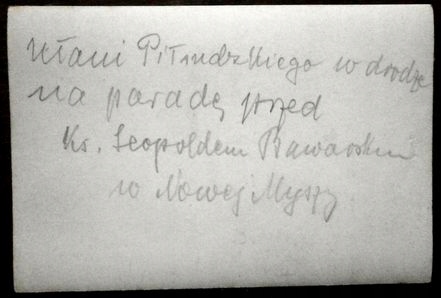 Ułani Piłsudskiego w drodze
na paradę przed
Ks. Leopoldem Bawarskim
w Nowej Myszy